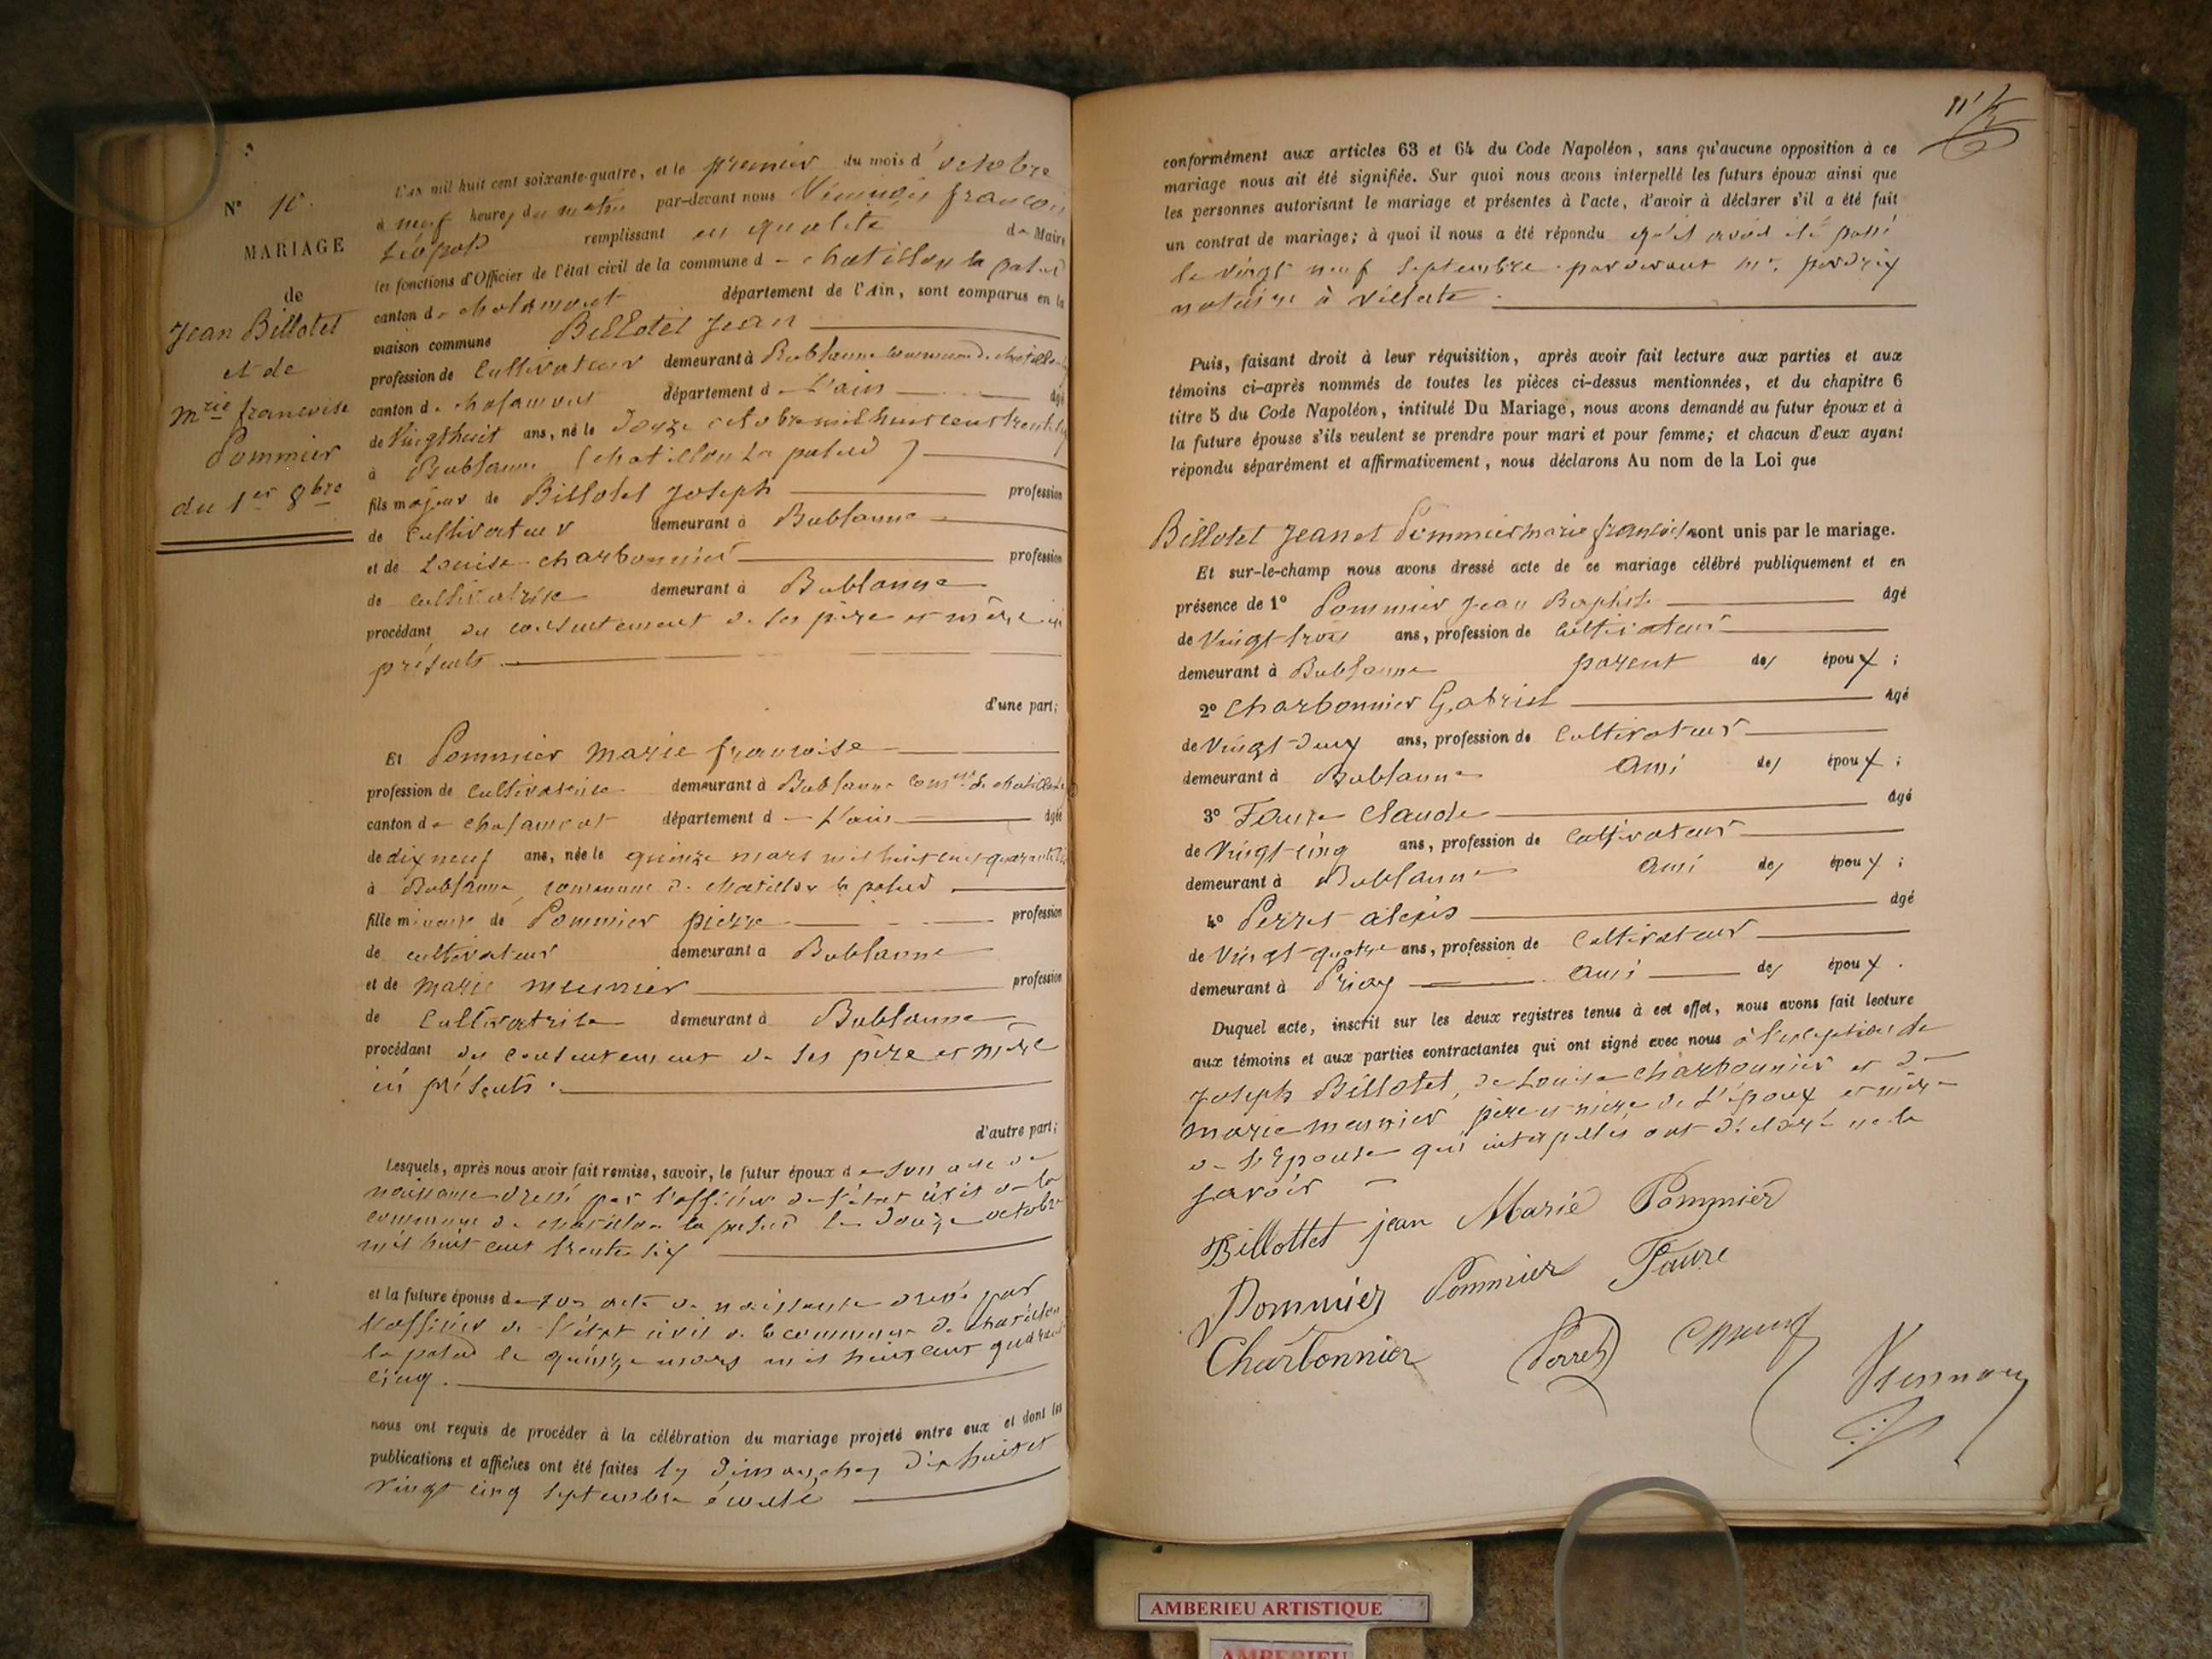 N°
MARIAGE
de
Jean Billotet
et de
Mrie francoise
Pommier
du 1er 8bre
L'an mil huit cent soixante-quatre, et le premier du mois d' octobre
à neuf heures du matin par-devant nous françois
Léopold remplissant en qualité de Maire
les fonctions d'Officier de l'état civil de la commune de chatillon la palud
canton de chalamont département de l'Ain, sont comparus en la
maison commune Billotet Jean
profession de cultivateur demeurant à Bublanne commune de chatillon
canton de chalamont département de L'ain âgé
de Vingt huit ans, né le Douze octobre mil huit cent trente six
à Bublanne (chatillon La palud)
fils majeur de Billotet Joseph profession
de cultivateur demeurant à Bublanne
et de Louise charbonnier profession
de cultivatrice demeurant à Bublanne
procédant du consentement de ses père et mère ici
présents
d'une part;
Et Pommier marie francoise
profession de cultivatrice demeurant à Bublanne comune de chatillon
canton de chalamont département de L'ain âgée
de dix neuf ans, née le quinze mars mil huit cent quarante cinq
à Bublanne, commune de chatillon la palud
fille mineure de Pommier pierre profession
de cultivateur demeurant à Bublanne
et de marie meunier profession
de cultivatrice demeurant à Bublanne
procédant du consentement de ses père et mère
ici présents.
d'autre part;
Lesquels, après nous avoir fait remise, savoir, le futur époux de son acte de
naissance dressé par l'officier de l'état civil de la
commune de chatillon la palud le Douze octobre
mil huit cent trente six
et la future épouse de son acte de naissance dressé par
l'officier de l'état civil de la commune de chatillon
la palud le quinze mars mil huit cent quarante
cinq.
nous ont requis de procéder à la célébration du mariage projeté entre eux et dont les
publications et affiches ont été faites les dimanches dix huit et
vingt cinq septembre écoulé
conformément aux articles 63 et 64 du Code Napoléon, sans qu'aucune opposition à ce
mariage nous ait été signifiée. Sur quoi nous avons interpellé les futurs époux ainsi que
les personnes autorisant le mariage et présentes à l'acte, d'avoir à déclarer s'il a été fait
un contrat de mariage; à quoi il nous a été répondu qu'il avait été passé
le vingt neuf septembre pardevant me. perdrix
notaire à villette.
Puis, faisant droit à leur réquisition, après avoir fait lecture aux parties et aux
témoins ci-après nommés de toutes les pièces ci-dessus mentionnées, et du chapitre 6
titre 5 du Code Napoléon, intitulé Du Mariage, nous avons demandé au futur époux et à
la future épouse s'ils veulent se prendre pour mari et pour femme; et chacun d'eux ayant
répondu séparément et affirmativement, nous déclarons Au nom de la Loi que
Billotet Jean et Pommier marie francoise sont unis par le mariage.
Et sur-le-champ nous avons dressé acte de ce mariage célébré publiquement et en
présence de 1° Pommier Jean Baptiste âgé
de Vingt trois ans, profession de cultivateur
demeurant à Bublanne parent des époux;
2° charbonnier Gabriel âgé
de Vingt-deux ans, profession de cultivateur
demeurant à Bublanne ami des époux;
3° Faure Claude âgé
de Vingt-cinq ans, profession de cultivateur
demeurant à Bublanne ami des époux;
4° Perret alexis âgé
de Vingt-quatre ans, profession de cultivateur
demeurant à Priay ami des époux.
Duquel acte, inscrit sur les deux registres tenus à cet effet, nous avons fait lecture
aux témoins et aux parties contractantes qui ont signé avec nous à l'exception de
Joseph Billotet, de Louise charbonnier et de
marie meunier père et mère de l'époux et mère
de l'épouse qui interpellés ont déclaré ne le
savoir
Billottet jean Marie Pommier
Pommier Pommier Faure
Charbonnier Perret
AMBERIEU ARTISTIQUE
AMBERIEU